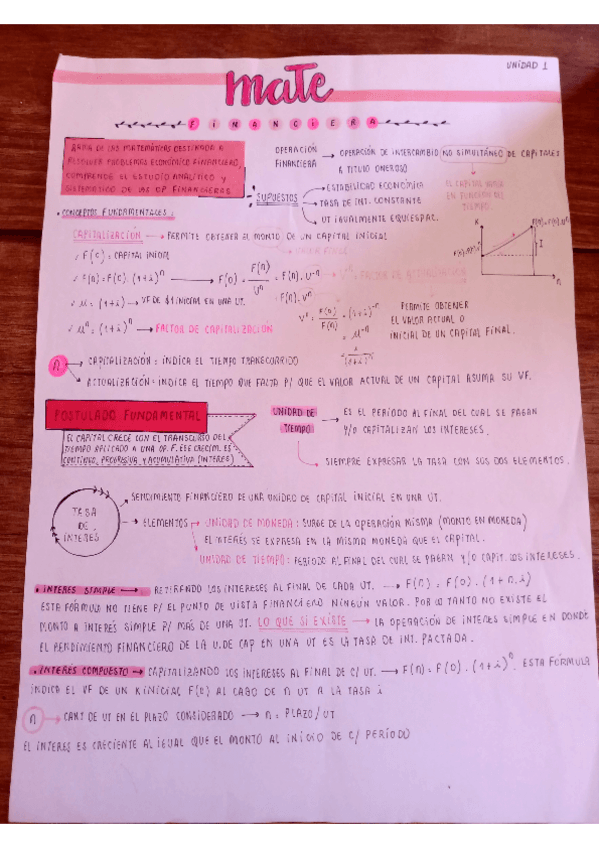 UNIDAD 1
mate
FINANCIERA
ÁREA DE LAS MATEMÁTICAS DESTINADA A
RESOLVER PROBLEMAS ECONÓMICO FINANCIERO,
COMPRENDE EL ESTUDIO ANALÍTICO Y
SISTEMÁTICO DE LAS OP. FINANCIERAS
OPERACIÓN FINANCIERA → OPERACIÓN DE INTERCAMBIO NO SIMULTÁNEO DE CAPITALES
A TITULO ONEROSO
SUPUESTOS
ESTABILIDAD ECONÓMICA
TASA DE INT. CONSTANTE
UT IGUALMENTE EQUIESPAC.
EL CAPITAL VARÍA
EN FUNCIÓN DEL
TIEMPO.
• CONCEPTOS FUNDAMENTALES:
CAPITALIZACIÓN → PERMITE OBTENER EL MONTO DE UN CAPITAL INICIAL
F(c) = CAPITAL INICIAL
F(n) = F(c).(1+i)^n → F(0) = F(n)/U^n = F(n).U^-n → V^n = FACTOR DE ACTUALIZACIÓN
= F(n).V^n
μ = (1+i) → VF DE $1 INICIAL EN UNA UT.
V^n = F(0)/F(n) = (1+i)^-n
= μ^-n
PERMITE OBTENER
EL VALOR ACTUAL O
INICIAL DE UN CAPITAL FINAL.
μ^n = (1+i)^n → FACTOR DE CAPITALIZACIÓN
n
CAPITALIZACIÓN: INDICA EL TIEMPO TRANSCURRIDO
ACTUALIZACIÓN: INDICA EL TIEMPO QUE FALTA P/ QUE EL VALOR ACTUAL DE UN CAPITAL ASUMA SU VF.
POSTULADO FUNDAMENTAL
EL CAPITAL CRECE CON EL TRANSCURSO DEL
TIEMPO APLICADO A UNA OP. F. ESE CRECIM. ES
CONTINUO, PROGRESIVA Y ACUMULATIVA (INTERES)
UNIDAD DE TIEMPO → ES EL PERÍODO AL FINAL DEL CUAL SE PAGAN
Y/O CAPITALIZAN LOS INTERESES.
SIEMPRE EXPRESAR LA TASA CON SUS DOS ELEMENTOS.
TASA
DE
INTERÉS
RENDIMIENTO FINANCIERO DE UNA UNIDAD DE CAPITAL INICIAL EN UNA UT.
ELEMENTOS → UNIDAD DE MONEDA: SURGE DE LA OPERACIÓN MISMA (MONTO EN MONEDA)
EL INTERÉS SE EXPRESA EN LA MISMA MONEDA QUE EL CAPITAL.
UNIDAD DE TIEMPO: PERIODO AL FINAL DEL CUAL SE PAGAN Y/O CAPIT. LOS INTERESES.
• INTERES SIMPLE → RETIRANDO LOS INTERESES AL FINAL DE CADA UT. → F(n) = F(0).(1+n.i)
ESTA FÓRMULA NO TIENE P/ EL PUNTO DE VISTA FINANCIERO NINGÚN VALOR. POR LO TANTO NO EXISTE EL
MONTO A INTERÉS SIMPLE P/ MÁS DE UNA UT. LO QUE SI EXISTE → LA OPERACIÓN DE INTERES SIMPLE EN DONDE
EL RENDIMIENTO FINANCIERO DE LA U. DE CAP EN UNA UT ES LA TASA DE INT. PACTADA.
• INTERÉS COMPUESTO → CAPITALIZANDO LOS INTERESES AL FINAL DE C/ UT. → F(n) = F(0).(1+i)^n. ESTA FÓRMULA
INDICA EL VF DE UN K INICIAL F(0) AL CABO DE n UT A LA TASA i
n → CANT DE UT EN EL PLAZO CONSIDERADO → n = PLAZO/UT
EL INTERES ES CRECIENTE AL IGUAL QUE EL MONTO AL INICIO DE C/ PERÍODO